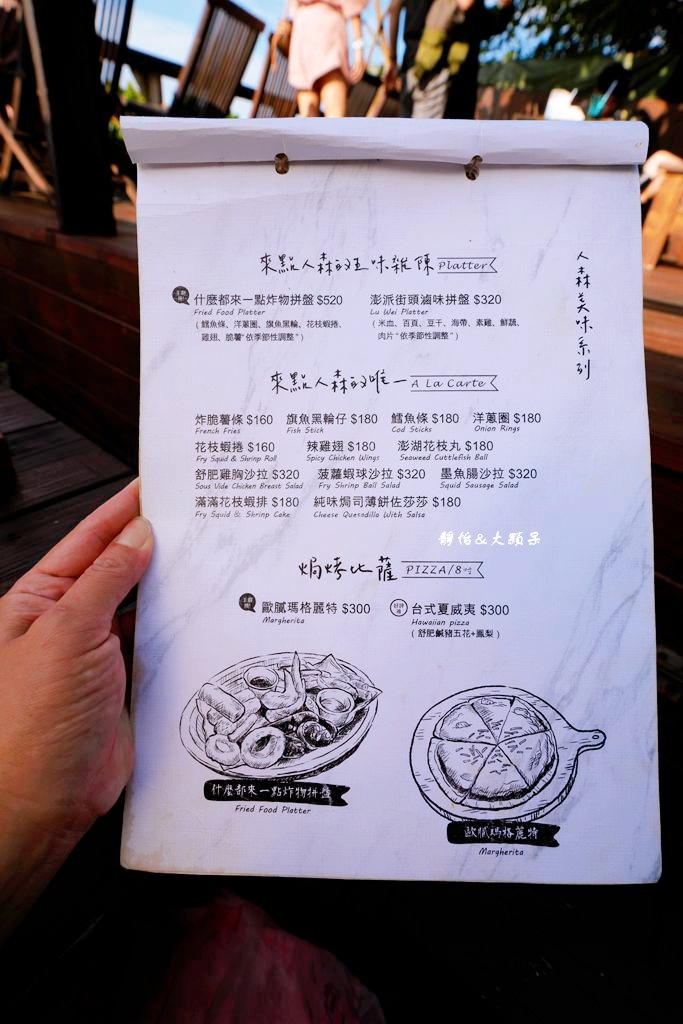 來點人森的五味雜陳 Platter
人森美味系列
什麼都來一點炸物拼盤 $520
Fried Food Platter
(鱈魚條、洋蔥圈、旗魚黑輪、花枝蝦捲、
雞翅、脆薯"依季節性調整")
澎派街頭滷味拼盤 $320
Lu Wei Platter
(米血、百頁、豆干、海帶、素雞、鮮蔬、
肉片"依季節性調整")
來點人森的唯一 A La Carte
炸脆薯條 $160 旗魚黑輪仔 $180 鱈魚條 $180 洋蔥圈 $180
French Fries Fish Stick Cod Sticks Onion Rings
花枝蝦捲 $160 辣雞翅 $180 澎湖花枝丸 $180
Fry Squid & Shrimp Roll Spicy Chicken Wings Seaweed Cuttlefish Ball
舒肥雞胸沙拉 $320 菠蘿蝦球沙拉 $320 墨魚腸沙拉 $320
Sous Vide Chicken Breast Salad Fry Shrimp Ball Salad Squid Sausage Salad
滿滿花枝蝦排 $180 純味焗司薄餅佐莎莎 $180
Fry Squid & Shrimp Cake Cheese Quesadilla With Salsa
靜怡&大顆呆
焗烤比薩 PIZZA/8吋
歐膩瑪格麗特 $300
Margherita
台式夏威夷 $300
Hawaiian pizza
(舒肥鹹豬五花+鳳梨)
什麼都來一點炸物拼盤
Fried Food Platter
歐膩瑪格麗特
Margherita